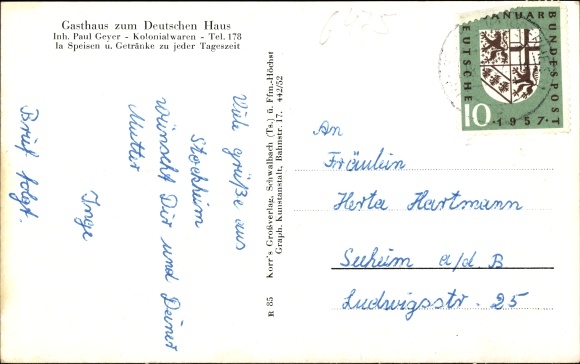 Gasthaus zum Deutschen Haus
Inh. Paul Geyer - Kolonialwaren - Tel. 178
Ia Speisen u. Getränke zu jeder Tageszeit
Viele Grüße aus
Stockheim
wünscht Dir und Deiner
Mutter
Inge
Brief folgt.
R 85 Korr's Großverlag, Schwalbach (Ts.) ü. Ffm.-Höchst
Graph. Kunstanstalt, Bahnstr. 17. 442/52
JANUAR
BUNDESPOST
DEUTSCHE
10
·1957·
An
Fräulein
Herta Hartmann
Seeheim a/d. B
Ludwigsstr. 25